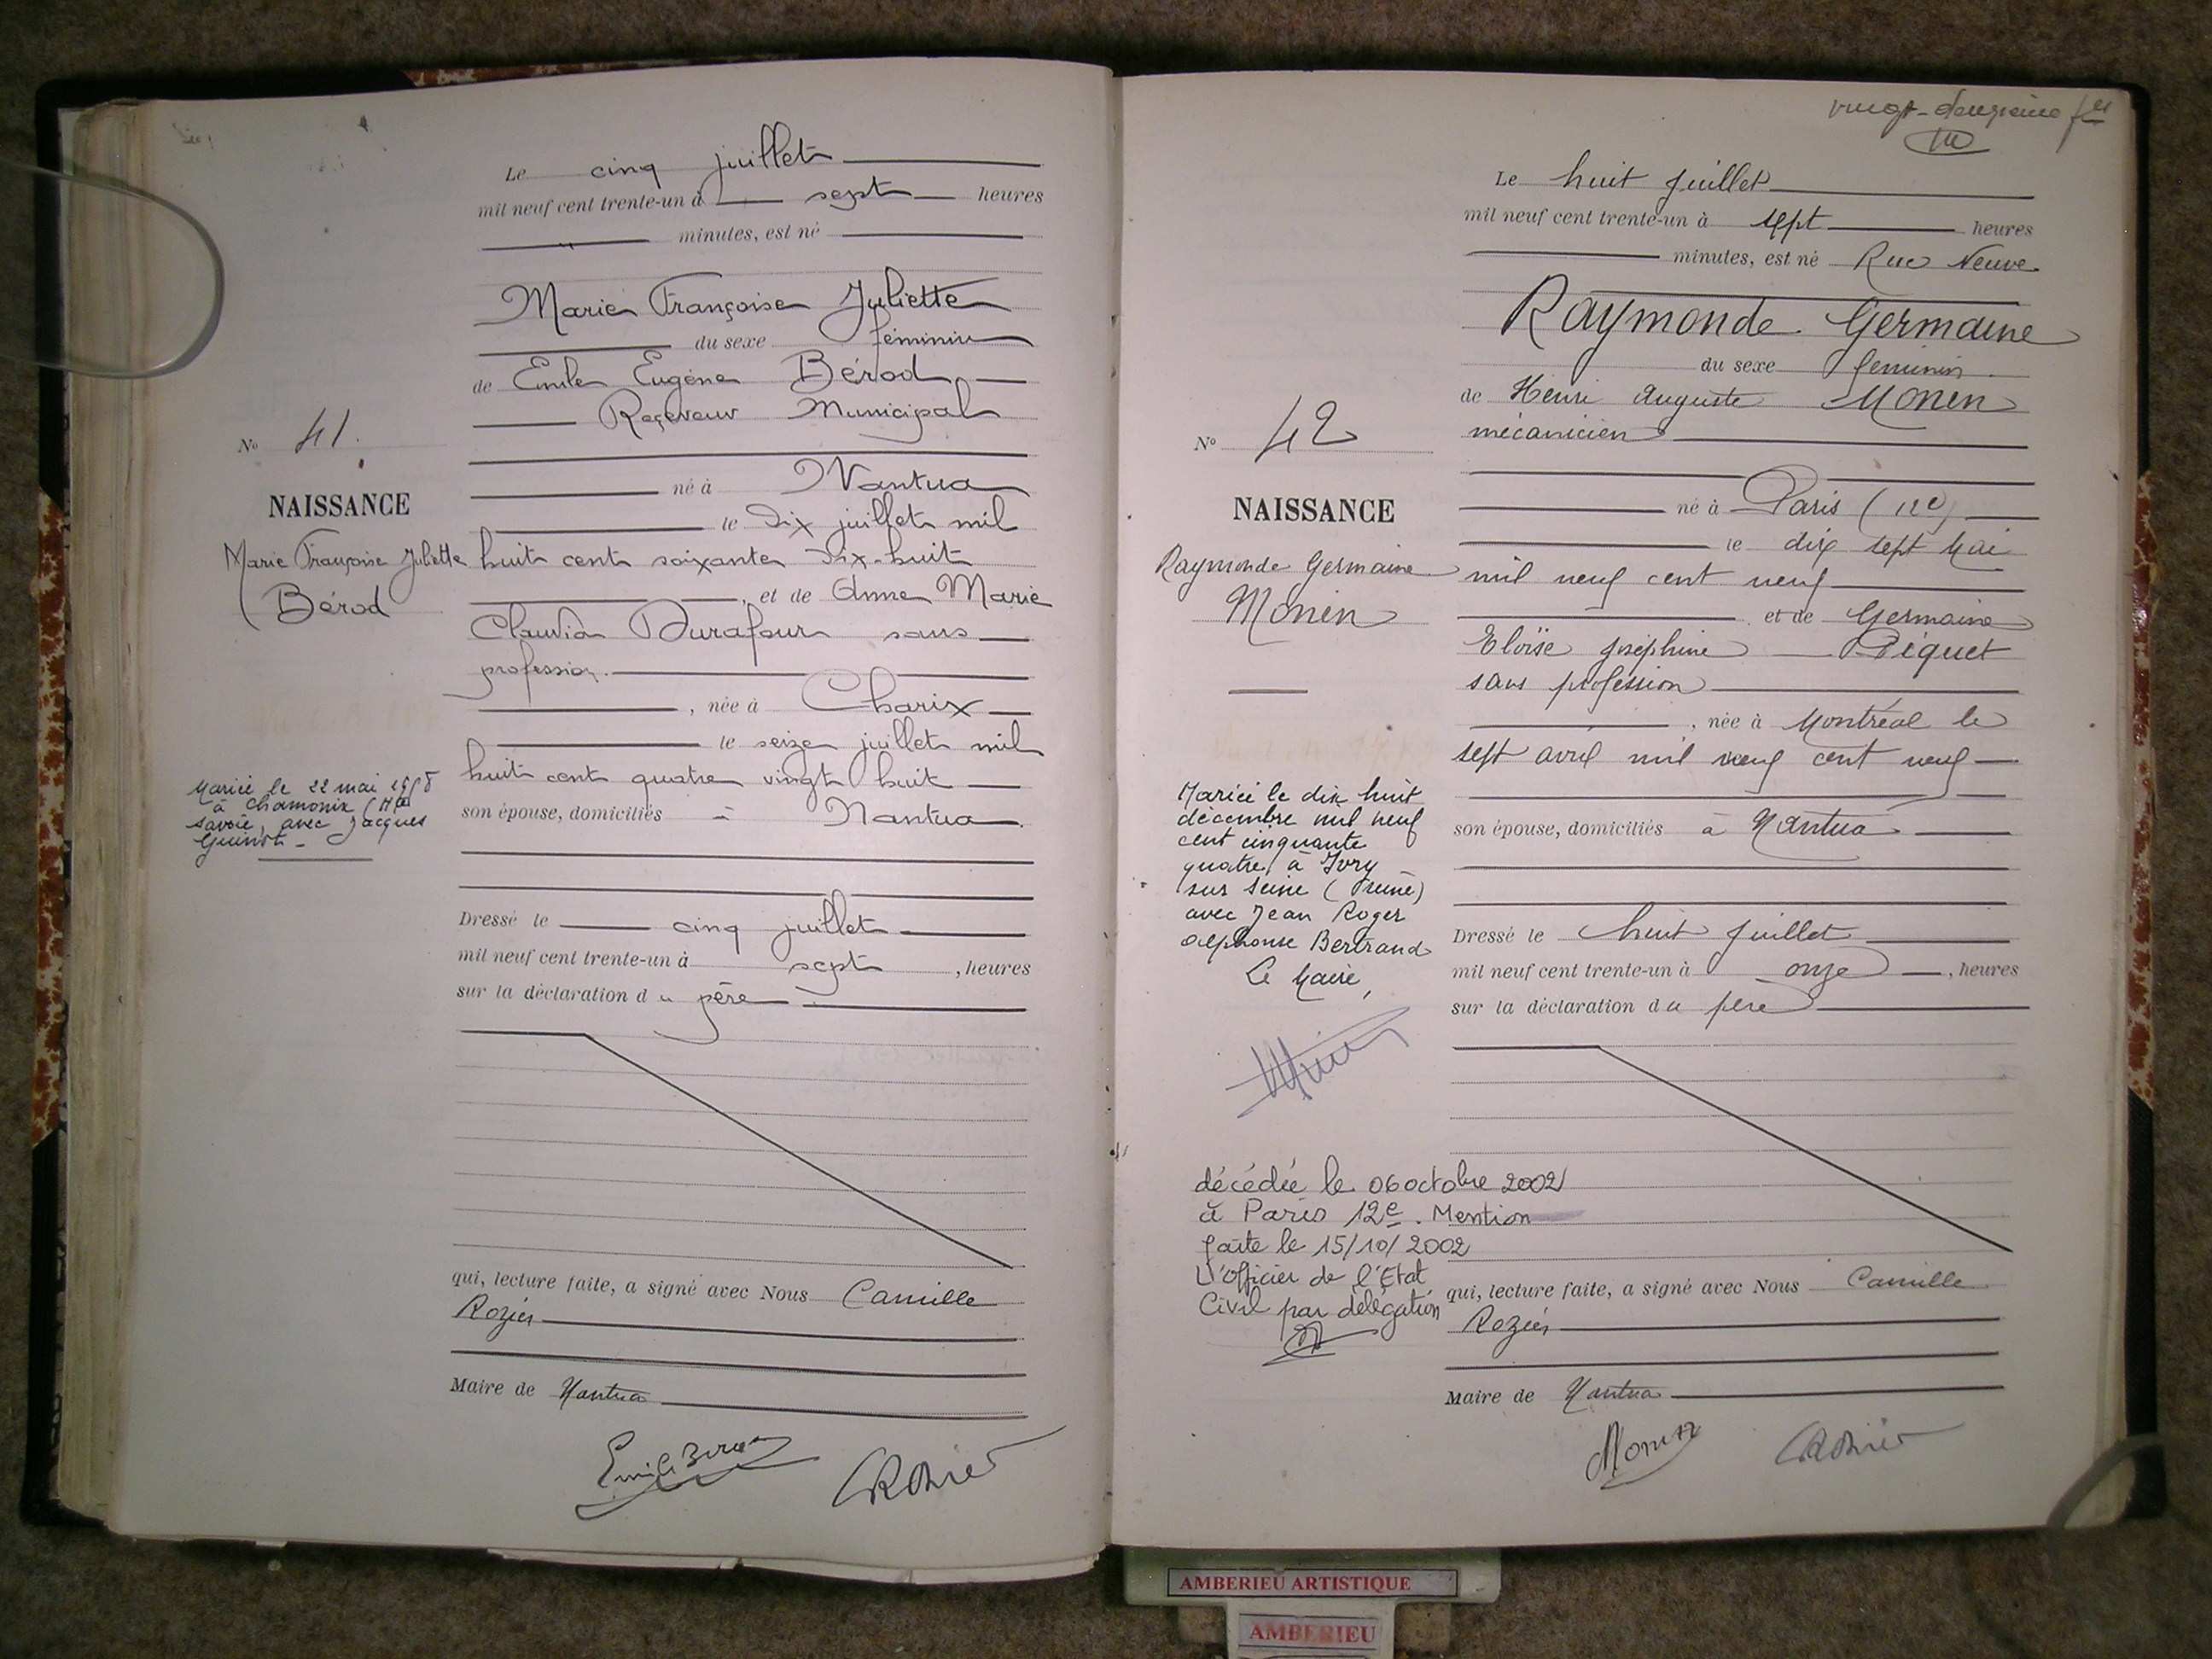 Le cinq juillet
mil neuf cent trente-un à sept heures
minutes, est né
Marie Françoise Juliette
du sexe féminin
de Emile Eugène Bérod
Receveur Municipal
né à Nantua
le dix juillet mil
huit cent soixante dix-huit
, et de Anne Marie
Claudia Durafour sans
profession.
, née à Charix
le seize juillet mil
huit cent quatre vingt huit
son épouse, domiciliés à Nantua.
Dressé le cinq juillet
mil neuf cent trente-un à sept , heures
sur la déclaration du père
qui, lecture faite, a signé avec Nous Camille
Rozier
Maire de Nantua
N° 41.
NAISSANCE
Marie Françoise Juliette
Bérod
Mariée le 22 mai
à Chamonix (Hte
Savoie, avec Jacques
vingt-deuxième
Le huit juillet
mil neuf cent trente-un à sept heures
minutes, est né Rue Neuve
Raymonde Germaine
du sexe feminin
de Henri Auguste Monin
mécanicien
né à Paris (12e)
le dix sept Mai
mil neuf cent neuf
et de Germaine
Eloïse Joséphine Péquet
sans profession
, née à Montréal le
sept avril mil neuf cent neuf
son épouse, domiciliés à Nantua
Dressé le huit juillet
mil neuf cent trente-un à onze , heures
sur la déclaration du père
qui, lecture faite, a signé avec Nous Camille
Rozier
Maire de Nantua
Monin
N° 42
NAISSANCE
Raymonde Germaine
Monin
Mariée le dix huit
décembre mil neuf
cent cinquante
quatre à Ivry
sur Seine (Seine)
avec Jean Roger
Alphonse Bertrand
Le Maire,
décédée le 06 octobre 2002
à Paris 12e. Mention
faite le 15/10/2002
L'officier de l'Etat
Civil par délégation
AMBERIEU ARTISTIQUE
AMBERIEU